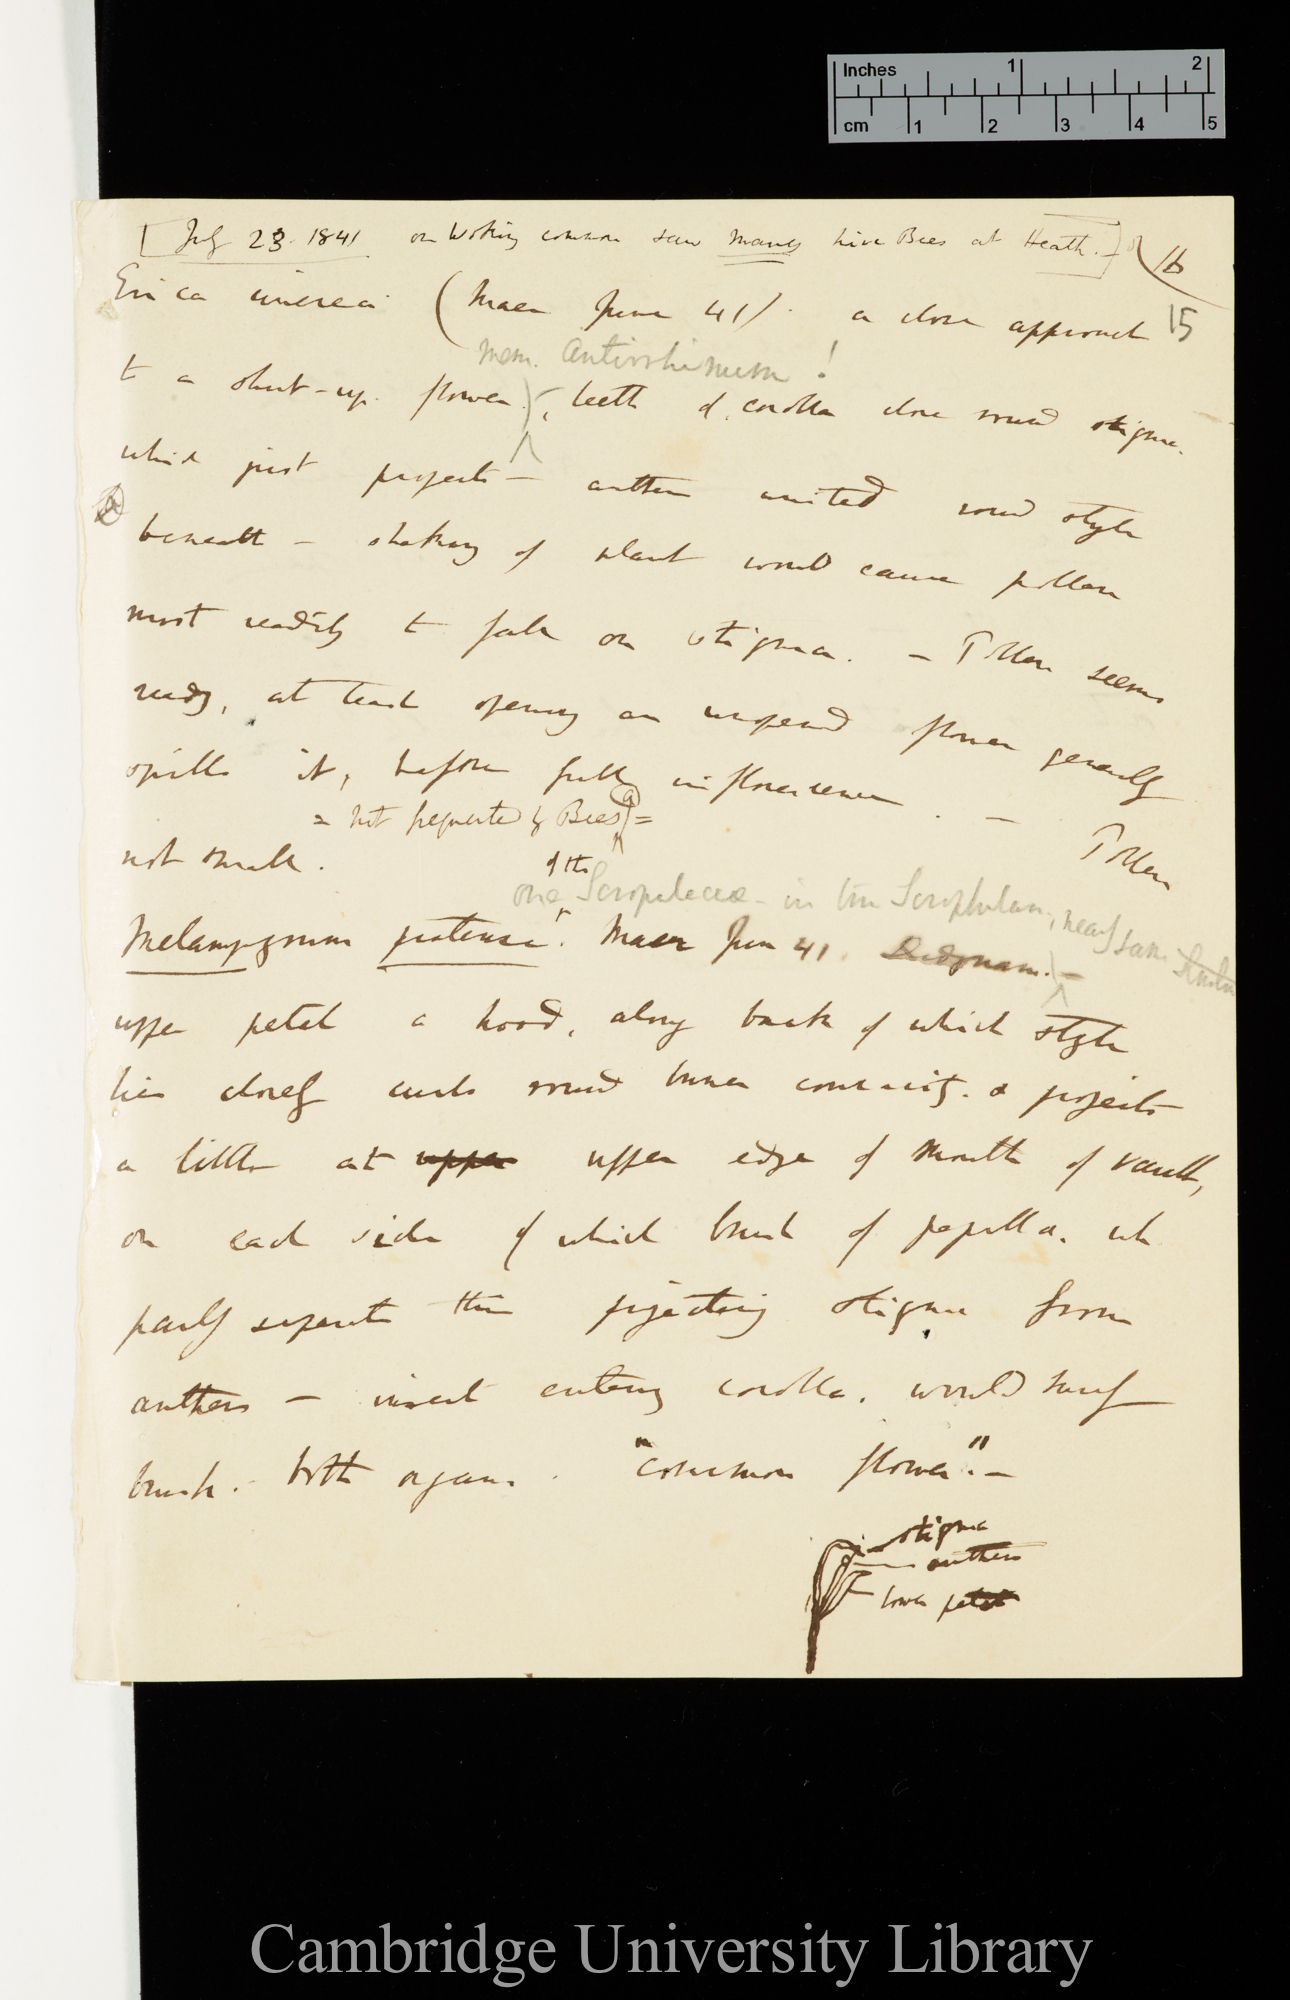 Inches 1 2
cm 1 2 3 4 5
[July 23. 1841 on Woking common saw many hive Bees at Heath.—] 16
Erica cinerea (Maer June 41) a close approach 15
mem. Antirrhinum!
to a shut-up flower. teeth of corolla close round stigma.
which just projects — anthers united round style
beneath — shaking of plant would cause pollen
most readily to fall on stigma. — Pollen seems
ready, at least opening an unopened flower generally
spills it, before full inflorescence — Pollen
= not frequented by Bees (a) =
not small.
of the
one in the near same
Melampyrum pratense. Maer June 41. Didynam. —
upper petal a hood, along back of which style
lies closely curls round inner concavity. & projects
a little at upper upper edge of mouth of vault,
on each side of which brush of papilla. wh
partly separate the projecting stigma from
anthers — insect entering corolla. would surely
brush. both organs. "common flower". —
stigma
anthers
lower petal
Cambridge University Library